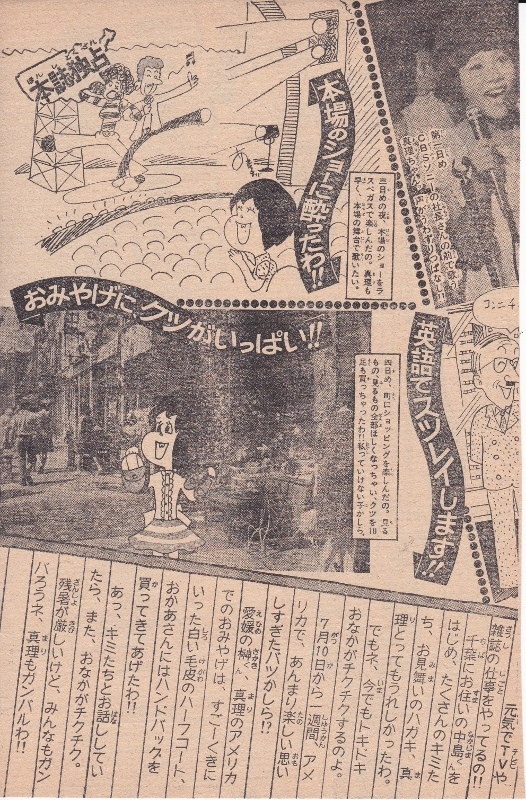 本誌独占
本場のショーに酔ったわ!!
三日めの夜、本場のショーをラ
スベガスで楽しんだの。真理も
早く、本場の舞台で歌いたい。
第一日め
おみやげに、クツがいっぱい!!
四日め、町にショッピングを楽しんだの。見る
もの見るもの全部ほしくなっちゃい、クツを10
足も買っちゃったわ!!私っていけない子かしら。
英語でスツレイします!!
コンニチ
元気でTVや
雑誌の仕事をやってるの!!
千葉にお住いの中島くんを
はじめ、たくさんのキミた
ち、お見舞いのハガキ、真
理とってもうれしかったわ。
でもネ、今でもトキドキ
おなかがチクチクするのよ。
7月10日から一週間、アメ
リカで、あんまり楽しい思い
しすぎたバツかしら!?
愛媛の榊くん、真理のアメリカ
でのおみやげは、すごーくきに
いった白い毛皮のハーフコート、
おかあさんにはハンドバックを
買ってきてあげたわ!!
あっ、キミたちとお話ししてい
たら、また、おなかがチクチク。
残暑が厳しいけど、みんなもガン
バろうネ、真理もガンバルわ!!